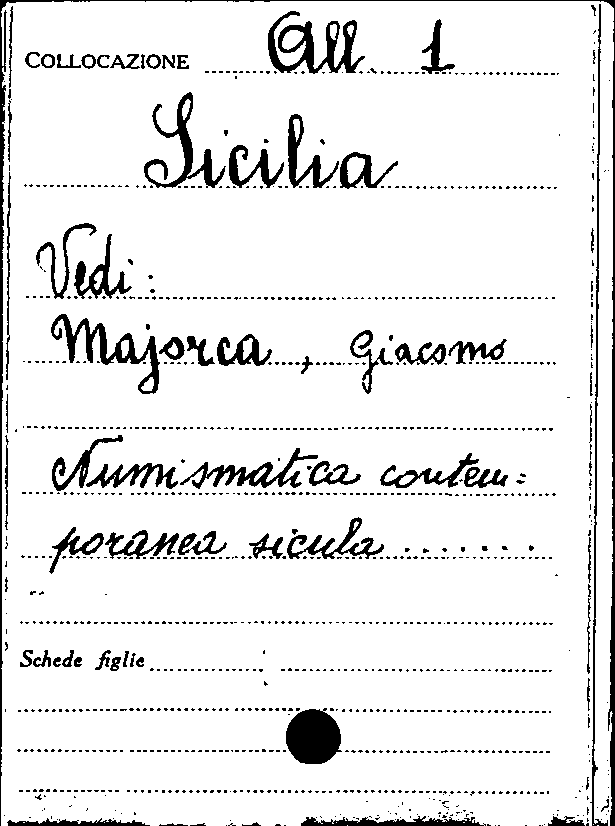 COLLOCAZIONE All. 1
Sicilia
Vedi:
Majorca, Giacomo
Numismatica contem=
poranea sicula .......
Schede figlie